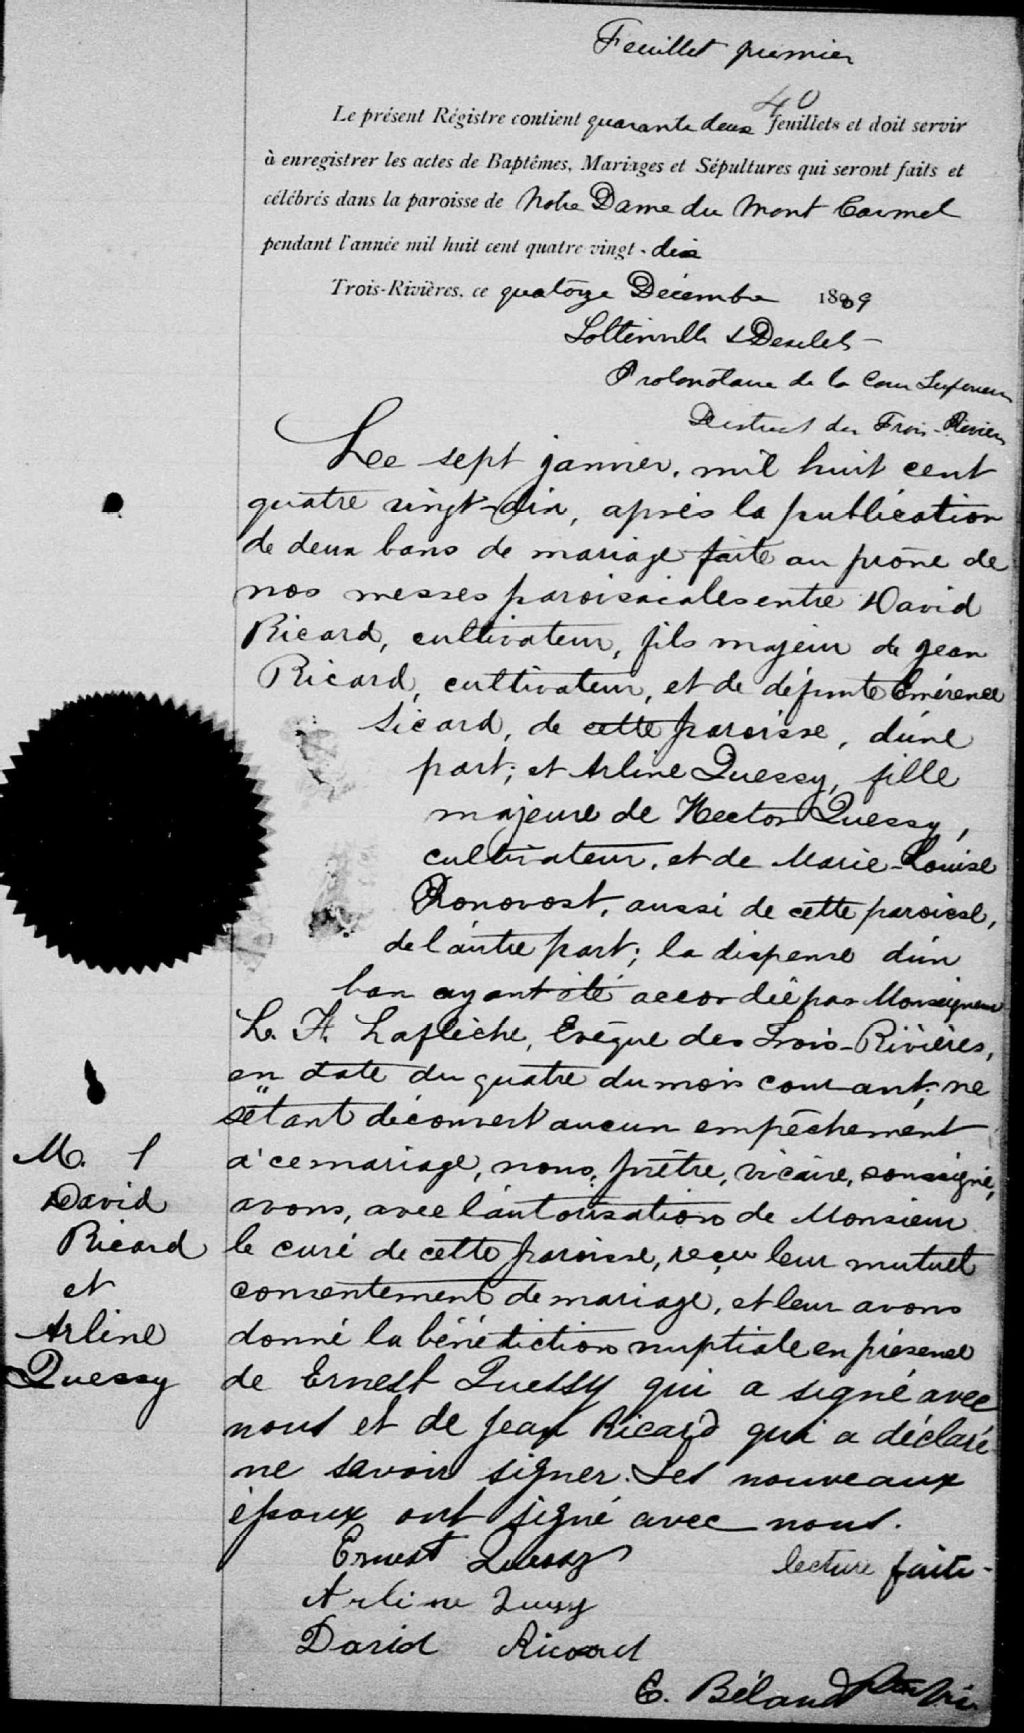 Feuillet premier
40
Le présent Régistre contient quarante deux feuillets et doit servir
à enregistrer les actes de Baptêmes, Mariages et Sépultures qui seront faits et
célébrés dans la paroisse de Notre Dame du Mont Carmel
pendant l'année mil huit cent quatre vingt-dix
Trois-Rivières, ce quatorze Décembre 1889
Lottinville & Desilets
Protonotaire de la Cour Supérieure
District des Trois-Rivières
Le sept janvier, mil huit cent
quatre vingt-dix, après la publication
de deux bans de mariage faite au prône de
nos messes paroissiales entre David
Ricard, cultivateur, fils majeur de Jean
Ricard, cultivateur, et de défunte Emérence
Sicard, de cette paroisse, d'une
part; et Arline Quessy, fille
majeure de Hector Quessy,
cultivateur, et de Marie-Louise
Pronovost, aussi de cette paroisse,
de l'autre part; la dispense d'un
ban ayant été accordée par Monseigneur
L. F. Laflèche, Evêque des Trois-Rivières,
en date du quatre du mois courant; ne
s'étant découvert aucun empêchement
à ce mariage, nous, prêtre, vicaire, soussigné,
avons, avec l'autorisation de Monsieur
le curé de cette paroisse, reçu leur mutuel
consentement de mariage, et leur avons
donné la bénédiction nuptiale en présence
de Ernest Quessy qui a signé avec
nous et de Jean Ricard qui a déclaré
ne savoir signer. Les nouveaux
époux ont signé avec nous.
M. 1
David
Ricard
et
Arline
Quessy
Ernest Quessy lecture faite-
Arline Quessy
David Ricard
E. Béland Ptre Vic